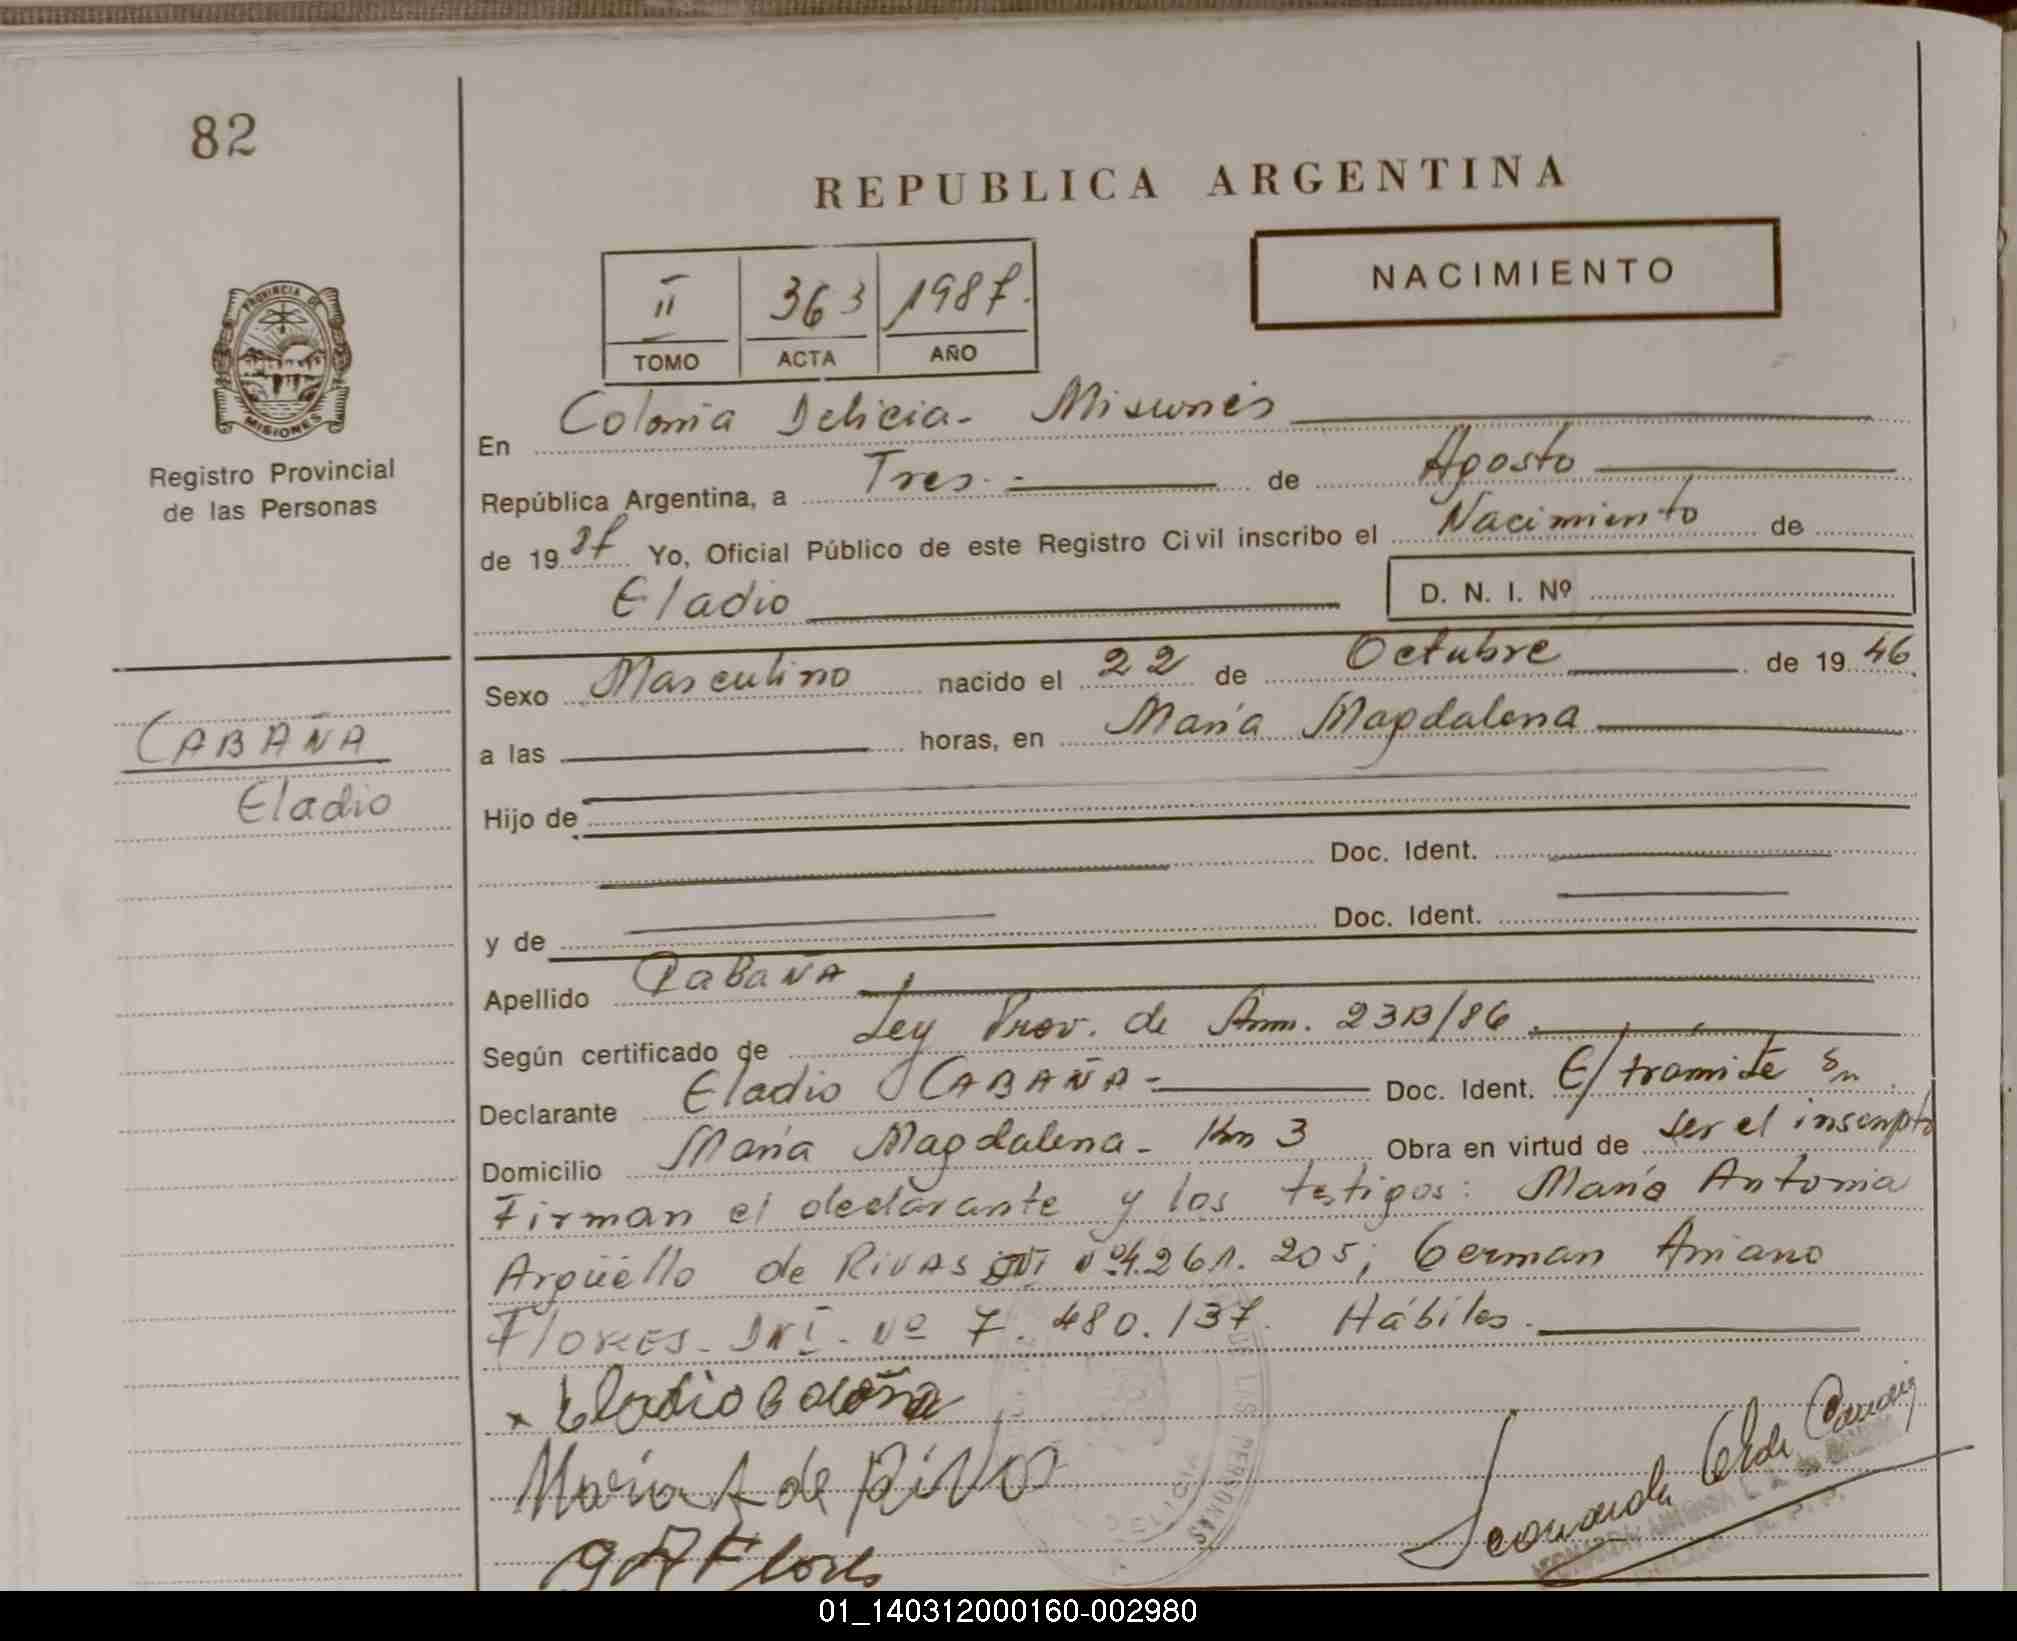 82
REPUBLICA ARGENTINA
NACIMIENTO
II 363 1987.
TOMO ACTA AÑO
PROVINCIA DE
MISIONES
Registro Provincial
de las Personas
En Colonia Delicia - Misiones
República Argentina, a Tres.- de Agosto
de 19 87 Yo, Oficial Público de este Registro Civil inscribo el Nacimiento de
Eladio D. N. I. Nº
Sexo Masculino nacido el 22 de Octubre de 19 46
CABAÑA
Eladio
a las horas, en María Magdalena
Hijo de
Doc. Ident.
y de Doc. Ident.
Apellido CaBaÑA
Según certificado de Ley Prov. de Amn. 2313/86.
Declarante Eladio CABAÑA - Doc. Ident. E/trámite
Domicilio María Magdalena - Km 3 Obra en virtud de ser el inscripto
Firman el declarante y los testigos: María Antonia
Argüello de RIVAS Nº 4.261.205; German Aniano
FLORES - DNI - Nº 7.480.137. Hábiles.
x Eladio Cabaña
María A de Rivas
G A Flores
DE LAS PERSONAS
DELICIA
01_140312000160-002980